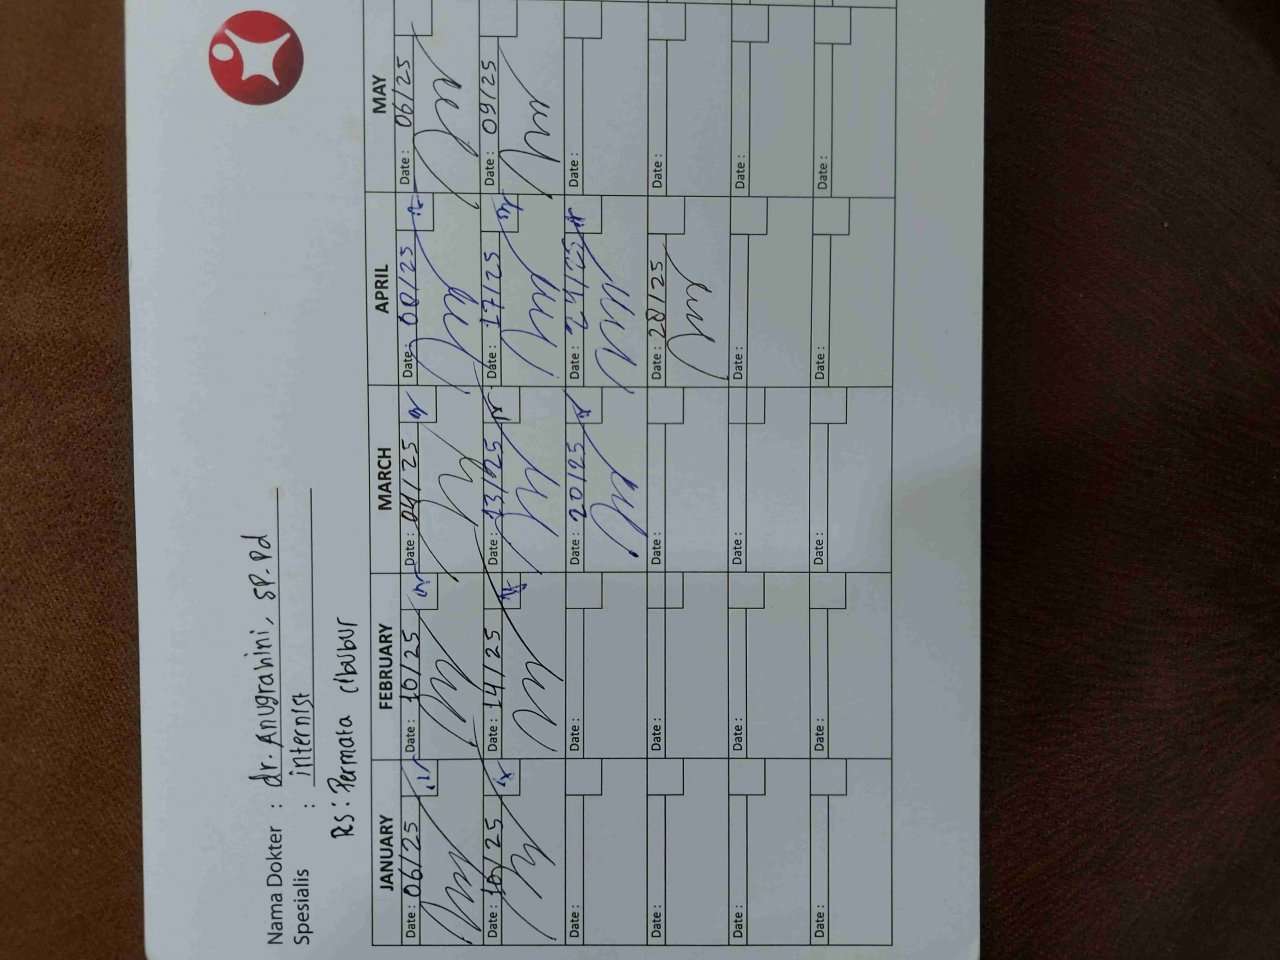 Nama Dokter : dr. Anugrahini, SP.Pd
Spesialis : internist
RS : Permata cibubur
JANUARY FEBRUARY MARCH APRIL MAY
Date : 06/25 Date : 10/25 Date : 04/25 Date : 08/25 Date : 06/25
Date : 10/25 Date : 14/25 Date : 13/25 Date : 17/25 Date : 09/25
Date : Date : Date : 20/25 Date : 24/25 Date :
Date : Date : Date : Date : 28/25 Date :
Date : Date : Date : Date : Date :
Date : Date : Date : Date : Date :